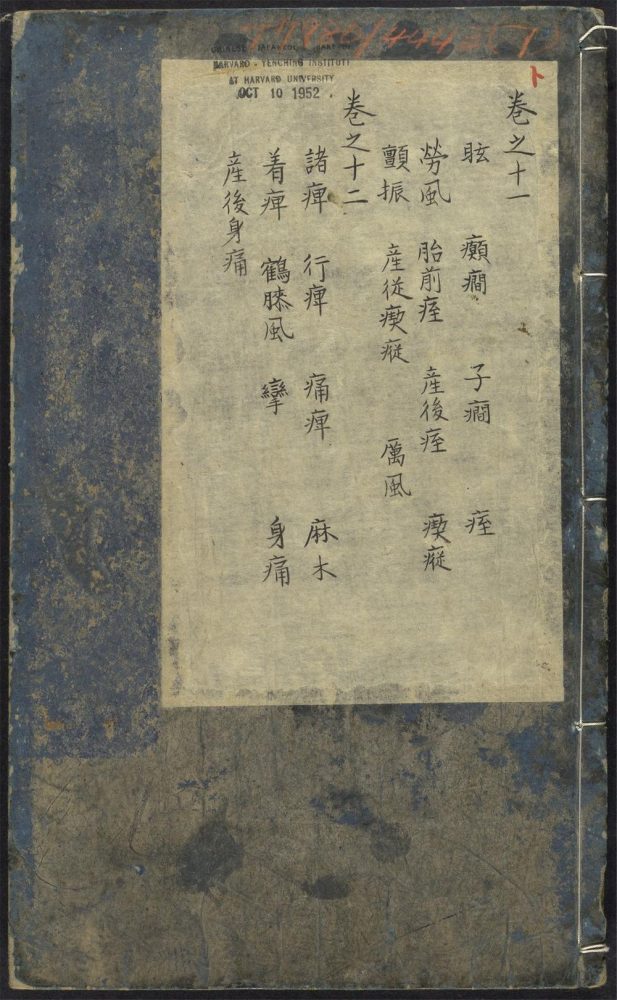 CHINESE JAPANESE LIBRARY
HARVARD-YENCHING INSTITUTE
AT HARVARD UNIVERSITY
OCT 10 1952
卜
巻之十一
眩 癲癎 子癎 痓
勞風 胎前痓 産後痓 瘈瘲
顫振 産後瘈瘲 厲風
巻之十二
諸痺 行痺 痛痺 麻木
着痺 鶴膝風 攣 身痛
産後身痛